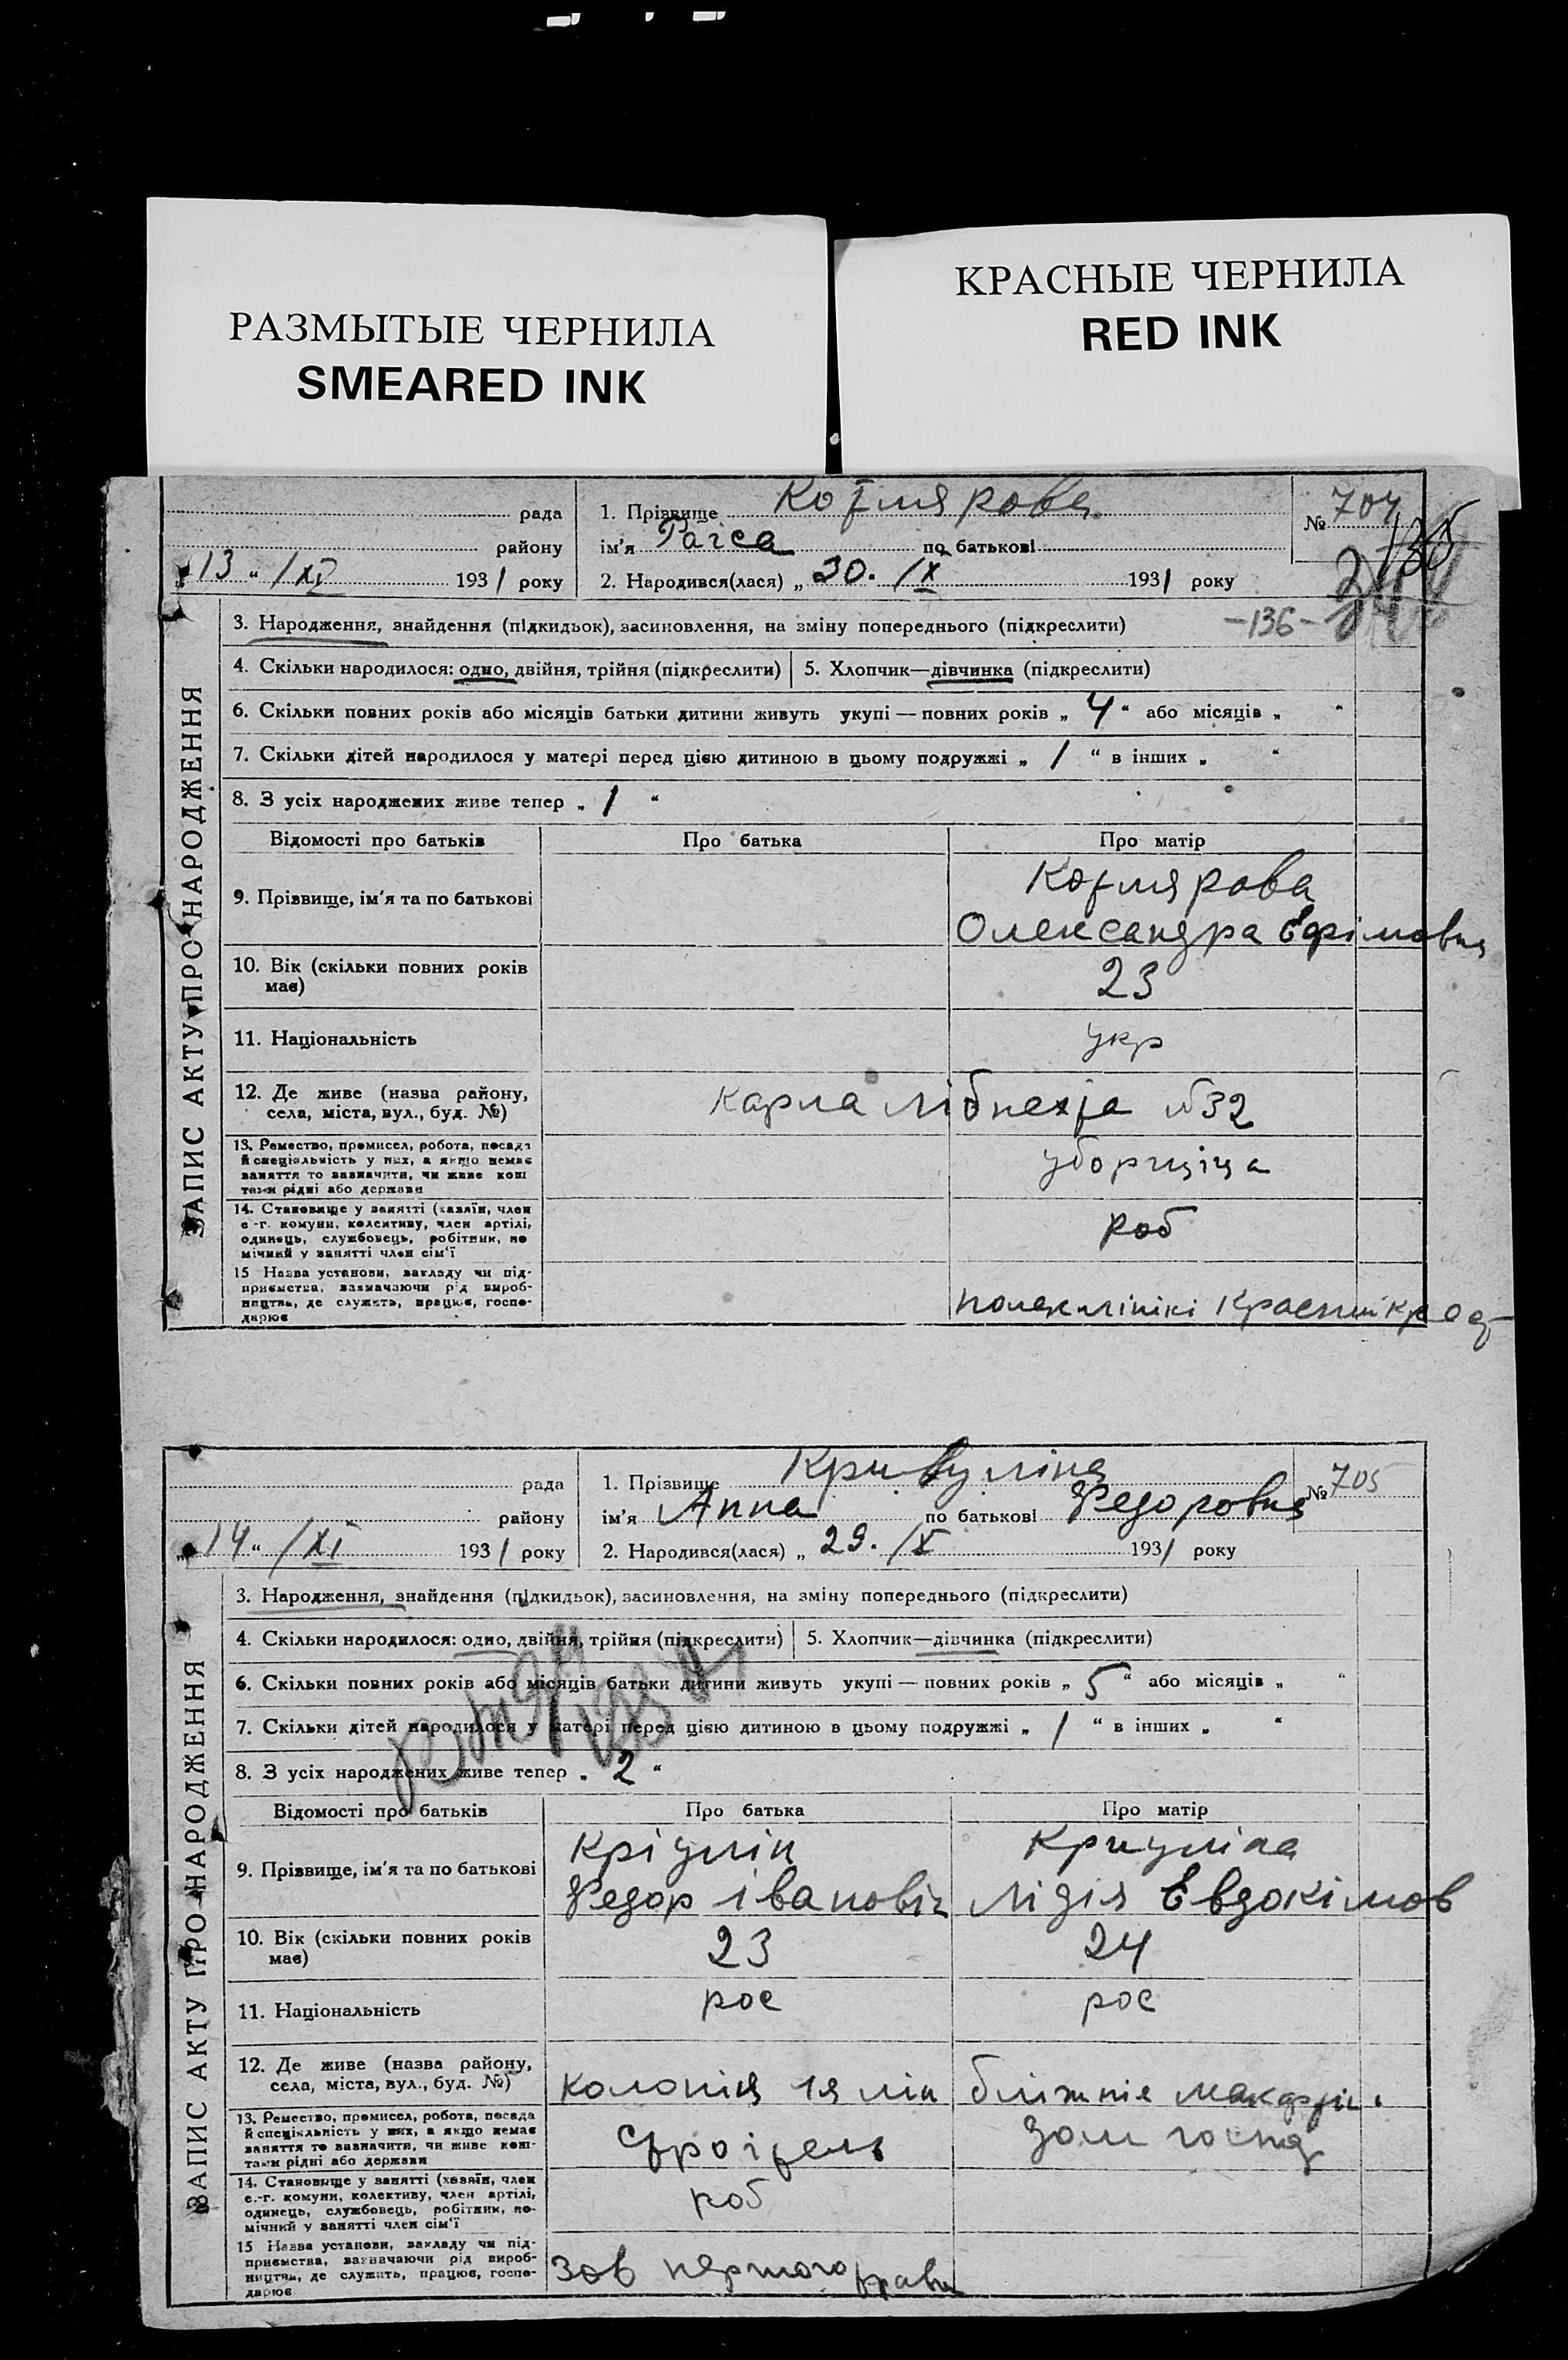 РАЗМЫТЫЕ ЧЕРНИЛА
SMEARED INK
КРАСНЫЕ ЧЕРНИЛА
RED INK
ЗАПИС АКТУ ПРО НАРОДЖЕННЯ
рада
району
„13“ /XI 1931 року
1. Прізвище Котлярова
ім'я Раіса по батькові
2. Народився(лася) „30. /X 1931 року
№ 704
135
-136-
3. Народження, знайдення (підкидьок), засиновлення, на зміну попереднього (підкреслити)
4. Скільки народилося: одно, двійня, трійня (підкреслити)
5. Хлопчик—дівчинка (підкреслити)
6. Скільки повних років або місяців батьки дитини живуть укупі — повних років „4“ або місяців „ “
7. Скільки дітей народилося у матері перед цією дитиною в цьому подружжі „1“ в інших „ “
8. З усіх народжених живе тепер „1“
Відомості про батьків Про батька Про матір
9. Прізвище, ім'я та по батькові
Котлярова
Олександра Єфімовна
10. Вік (скільки повних років має)
23
11. Національність
укр
12. Де живе (назва району, села, міста, вул., буд. №)
Карла Лібнехта №32
13. Ремество, промисел, робота, посада
й спеціяльність у них, а якщо немає
заняття то зазначити, чи живе кош
тами рідні або держави
уборщіца
14. Становище у занятті (хазяїн, член
с.-г. комуни, колективу, член артілі,
одинець, службовець, робітник, по
мічний у занятті член сім'ї
роб
15 Назва установи, закладу чи під-
приємства, зазначаючи рід вироб-
ництва, де служить, працює, госпо-
дарює
Красний
ЗАПИС АКТУ ПРО НАРОДЖЕННЯ
рада
району
„14“ /XI 1931 року
1. Прізвище Кривуліна
ім'я Анна по батькові Федоровна
2. Народився(лася) „29. /X 1931 року
№ 705
3. Народження, знайдення (підкидьок), засиновлення, на зміну попереднього (підкреслити)
4. Скільки народилося: одно, двійня, трійня (підкреслити)
5. Хлопчик—дівчинка (підкреслити)
6. Скільки повних років або місяців батьки дитини живуть укупі — повних років „5“ або місяців „ “
7. Скільки дітей народилося у матері перед цією дитиною в цьому подружжі „1“ в інших „ “
8. З усіх народжених живе тепер „2“
Відомості про батьків Про батька Про матір
9. Прізвище, ім'я та по батькові
Кріулін
Федор Івановіч
Криуліна
Лідія Євдокімов
10. Вік (скільки повних років має)
23 24
11. Національність
рос рос
12. Де живе (назва району, села, міста, вул., буд. №)
Колонія 1я лін бліжнія
13. Ремество, промисел, робота, посада
й спеціяльність у них, а якщо немає
заняття то зазначити, чи живе кош-
тами рідні або держави
Строітель Дом госпд
14. Становище у занятті (хазяїн, член
с.-г. комуни, колективу, член артілі,
одинець, службовець, робітник, по-
мічний у занятті член сім'ї
роб
15 Назва установи, закладу чи під-
приємства, зазначаючи рід вироб-
ництва, де служить, працює, госпо-
дарює
Зов